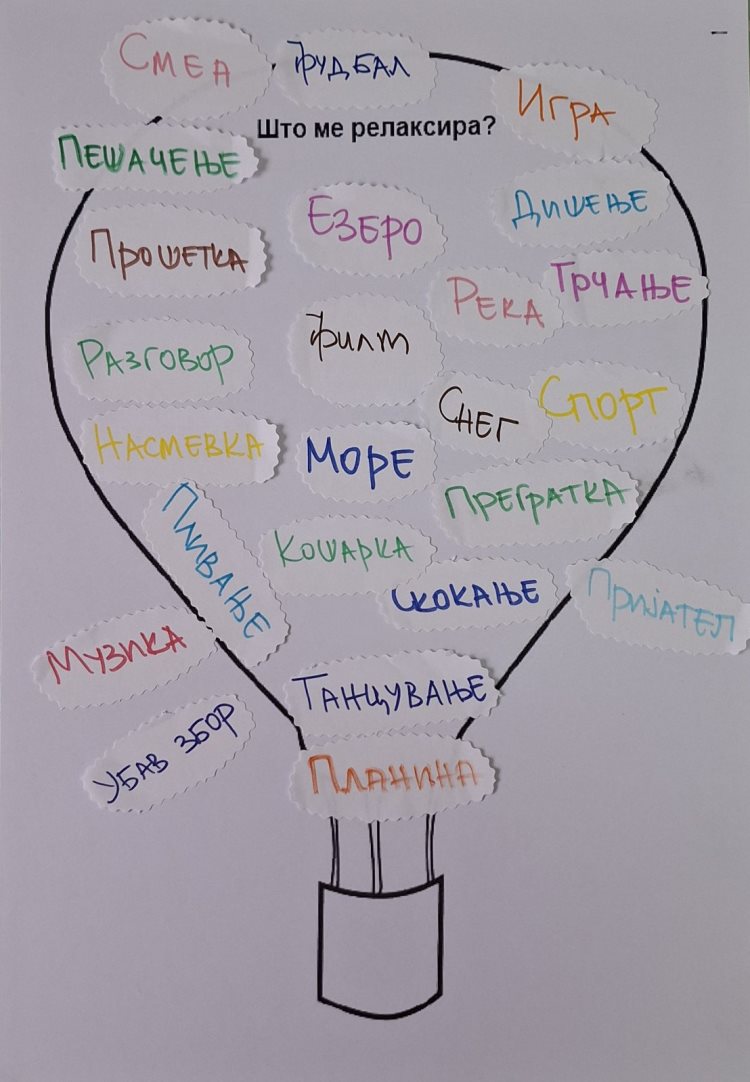 Смеа
Фудбал
Игра
Што ме релаксира?
Пешачење
Дишење
Езеро
Прошетка
Трчање
Река
Филм
Разговор
Снег
Спорт
Насмевка
Море
Прегратка
Пливање
Кошарка
Скокање
Пријател
Музика
Танцување
Убав збор
Планина